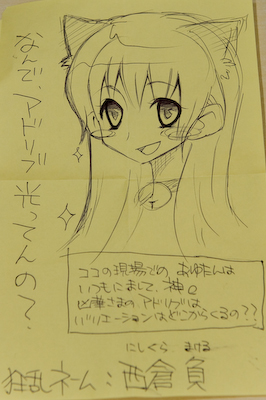 なんで、アドリブ
光ってんの?
T
ココの現場での、おゆたんは
いつもにまして、神。
凶華さまのアドリブは
バリエーションはどこからくるの??
にしくら まける
狂乱ネーム:西倉 負